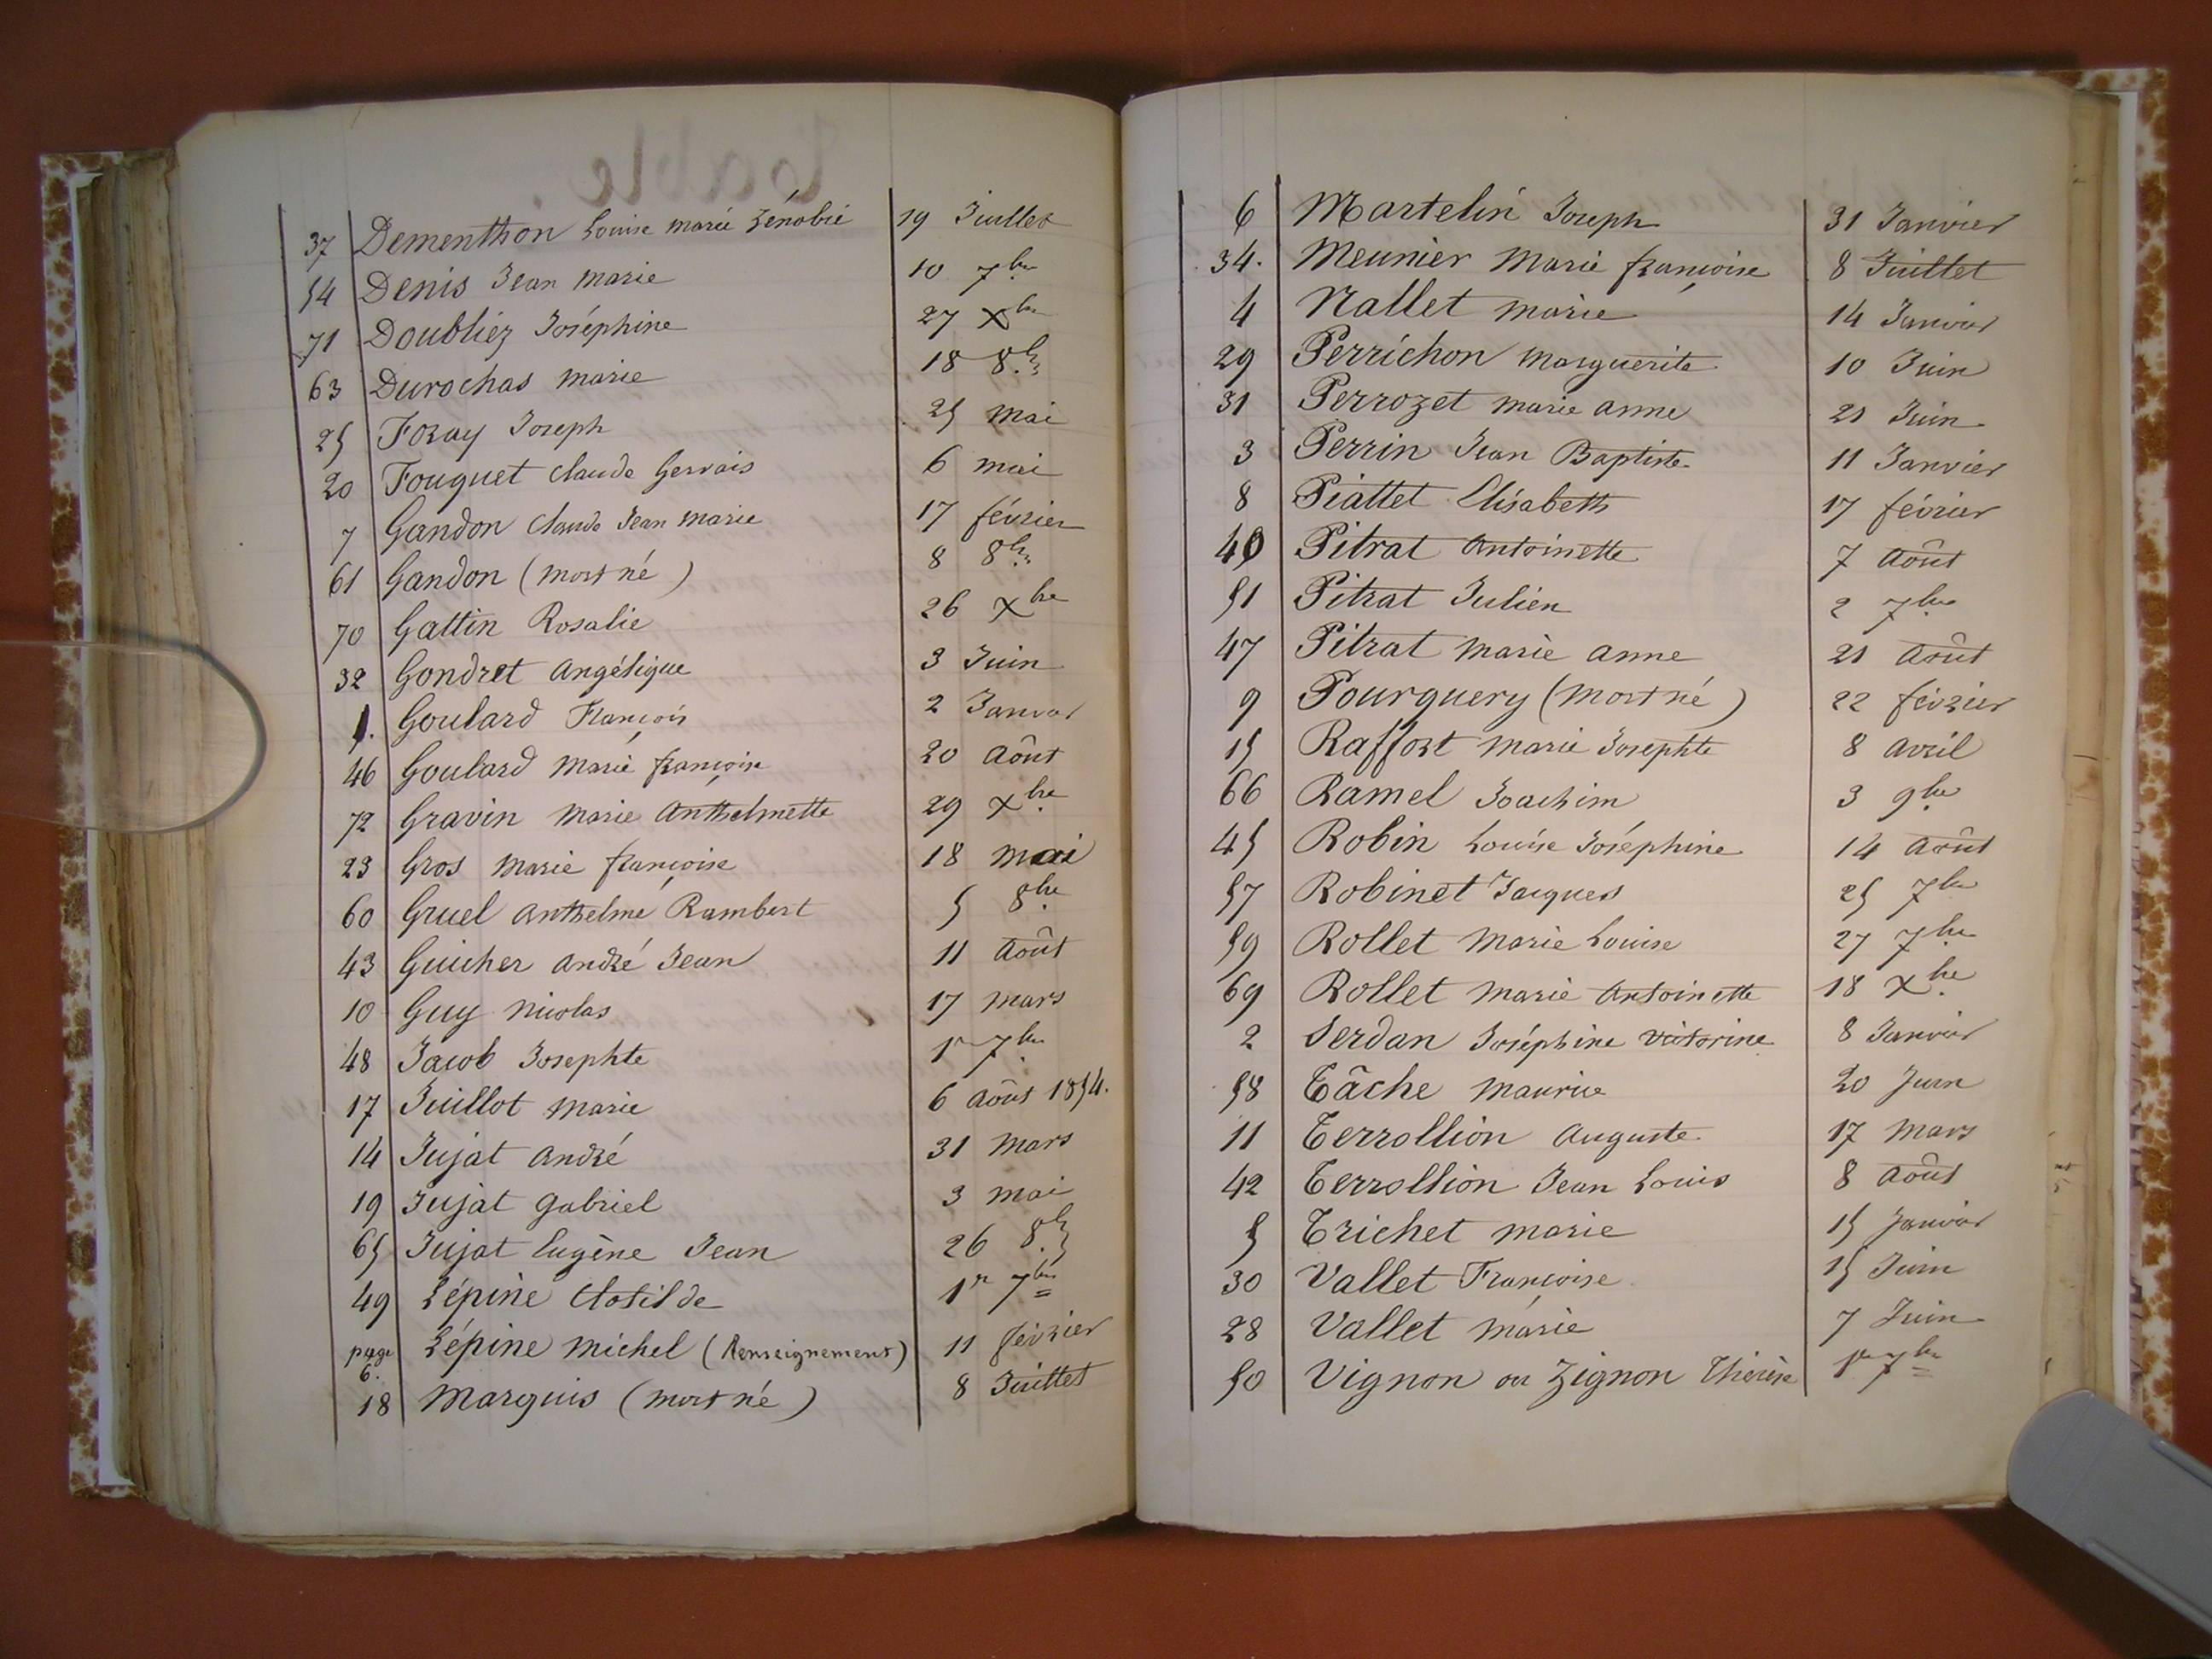 37 Dementhon Louise marie Zénobie 19 Juillet
54 Denis Jean marie 10 7bre
71 Doubliez Joséphine 27 Xbre
63 Durochas marie 18 8bre
25 Foray Joseph 25 mai
20 Fouquet Claude Gervais 6 mai
7 Gandon Claude Jean Marie 17 février
61 Gandon (mort né) 8 8bre
70 Gattin Rosalie 26 Xbre
32 Gondret Angélique 3 Juin
1. Goulard François 2 Janvier
46 Goulard Marie françoise 20 Août
72 Gravin Marie Anthelmette 29 Xbre
23 Gros Marie françoise 18 mai
60 Gruel Anthelme Rambert 5 8bre
43 Guicher André Jean 11 Août
10 Guy Nicolas 17 Mars
48 Jacob Josephte 1r 7bre
17 Juillot Marie 6 Août 1854.
14 Jujat André 31 Mars
19 Jujat Gabriel 3 mai
65 Jujat Eugène Jean 26 8bre
49 Lépine Clotilde 1r 7bre
page 6. Lépine Michel (Renseignement) 11 février
18 Marquis (mort né) 8 Juillet
table.
6 Martelin Joseph 31 Janvier
34. Meunier Marie françoise 8 Juillet
4 Nallet marie 14 Janvier
29 Perrichon Marguerite 10 Juin
31 Perrozet marie anne 21 Juin
3 Perrin Jean Baptiste 11 Janvier
8 Piattet Elisabeth 17 février
40 Pitrat Antoinette 7 Août
51 Pitrat Julien 2 7bre
47 Pitrat Marie anne 21 Août
9 Pourquery (mort né) 22 février
15 Raffort Marie Josephte 8 Avril
66 Ramel Joachim 3 9bre
45 Robin Louise Joséphine 14 Août
57 Robinet Jacques 25 7bre
59 Rollet Marie Louise 27 7bre
69 Rollet Marie Antoinette 18 Xbre
2 Serdan Joséphine Victorine 8 Janvier
58 Tâche Maurice 20 Juin
11 Terrollion Auguste 17 Mars
42 Terrollion Jean Louis 8 Août
5 Trichet Marie 15 Janvier
30 Vallet Françoise 15 Juin
28 Vallet Marie 7 Juin
50 Vignon ou Zignon Thérèse 1r 7bre